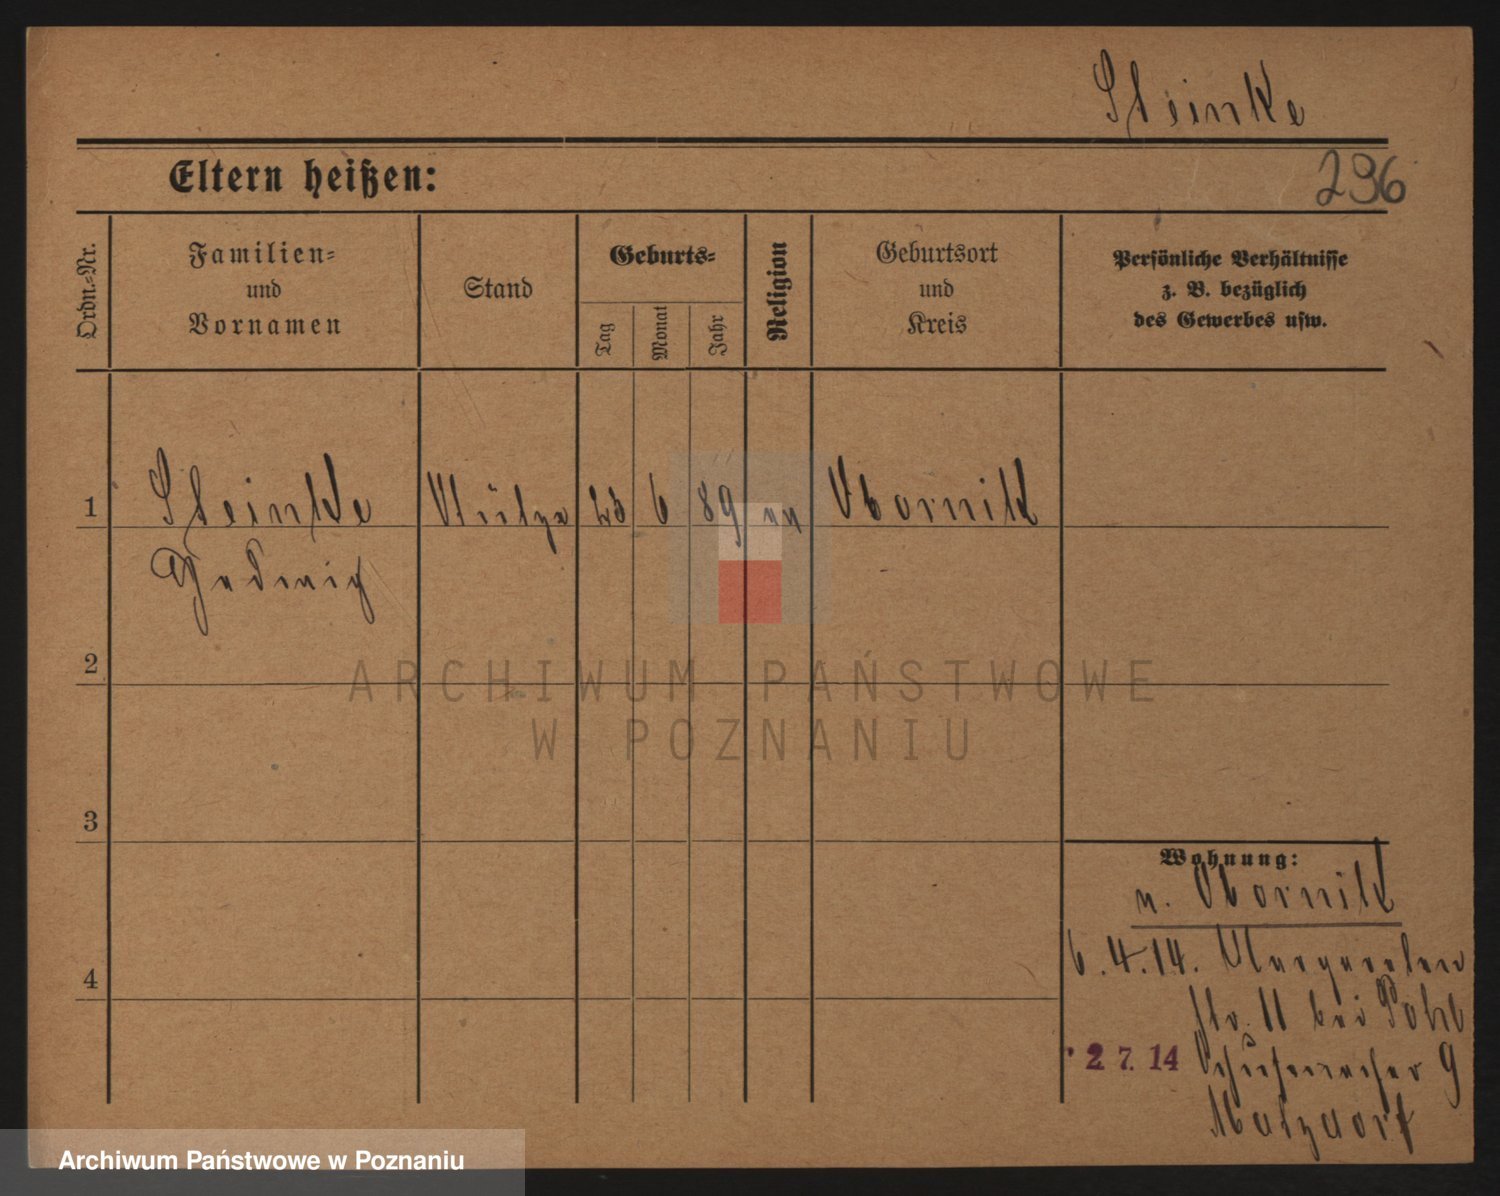 Steinke
Eltern heißen:
296
Ordn.-Nr.
Familien-
und
Vornamen
Stand
Geburts-
Tag
Monat
Jahr
Religion
Geburtsort
und
Kreis
Persönliche Verhältnisse
z. B. bezüglich
des Gewerbes usw.
1
Steinke Stütze 23 6 89 Obornik
Hedwig
2
3
4
Wohnung:
n. Obornik
6.4.14. Margareten
str. 11 bei Pohl
2 7. 14 Schuhmacher 9
Matzdorf
ARCHIWUM PAŃSTWOWE
W POZNANIU
Archiwum Państwowe w Poznaniu